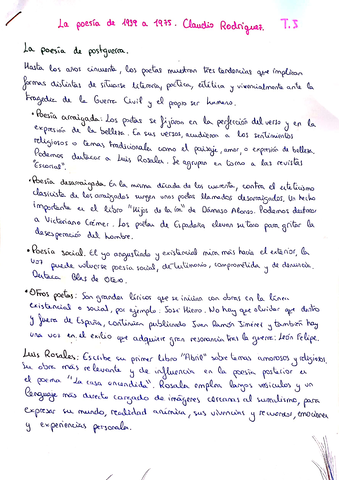 La poesía de 1939 a 1975. Claudio Rodríguez. T.3
La poesía de postguerra.
Hasta los años cincuenta, los poetas muestran tres tendencias que implican
formas distintas de situarse literaria, poética, estética y vivencialmente ante la
tragedia de la Guerra Civil y el propio ser humano.
• Poesía arraigada: Los poetas se fijaron en la perfección del verso y en la
expresión de la belleza. En sus versos, acudieron a los sentimientos
religiosos o temas tradicionales como el paisaje, amor, o expresión de belleza.
Podemos destacar a Luis Rosales. Se agrupan en torno a las revistas
"Escorial".
• Poesía desarraigada: En la misma década de los cuarenta, contra el esteticismo
clasicista de los arraigados surgen unos poetas llamados desarraigados. Un hecho
importante es el libro "Hijos de la ira" de Dámaso Alonso. Podemos destacar
a Victoriano Crémer. Los poetas de Espadaña elevan su tono para gritar la
desesperación del hombre.
• Poesía social. El yo angustiado y existencial mira más hacia el exterior, la
voz puede volverse poesía social, de testimonio, comprometida y de denuncia.
Destaca Blas de Otero.
• Otros poetas: Son grandes líricos que se inician con obras en la línea
existencial o social, por ejemplo: José Hierro. No hay que olvidar que dentro
y fuera de España, continúan publicando Juan Ramón Jiménez y también hay
una voz en el exilio que adquiere gran resonancia tras la guerra: León Felipe.
Luis Rosales: Escribe su primer libro "Abril" sobre temas amorosos y religiosos.
Su obra más relevante y de influencia en la poesía posterior es
el poema "La casa encendida". Rosales emplea largos versículos y un
lenguaje más directo cargado de imágenes cercanas al surrealismo, para
expresar su mundo, realidad anímica, sus vivencias y recuerdos, emociones
y experiencias personales.